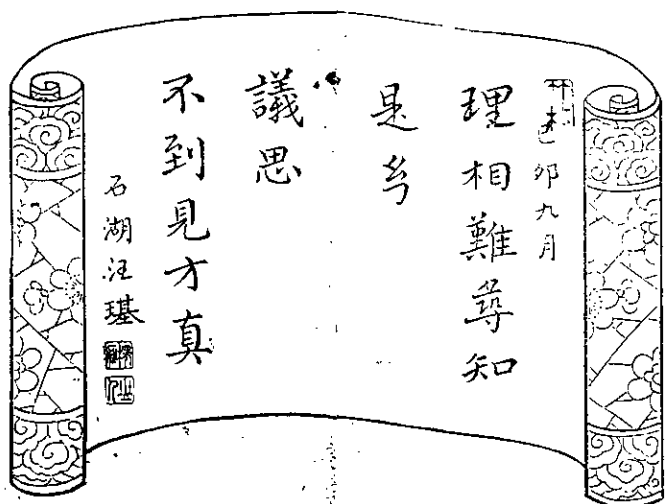 己卯九月
理相難尋知
是
議思
不到見方真
石湖汪璂